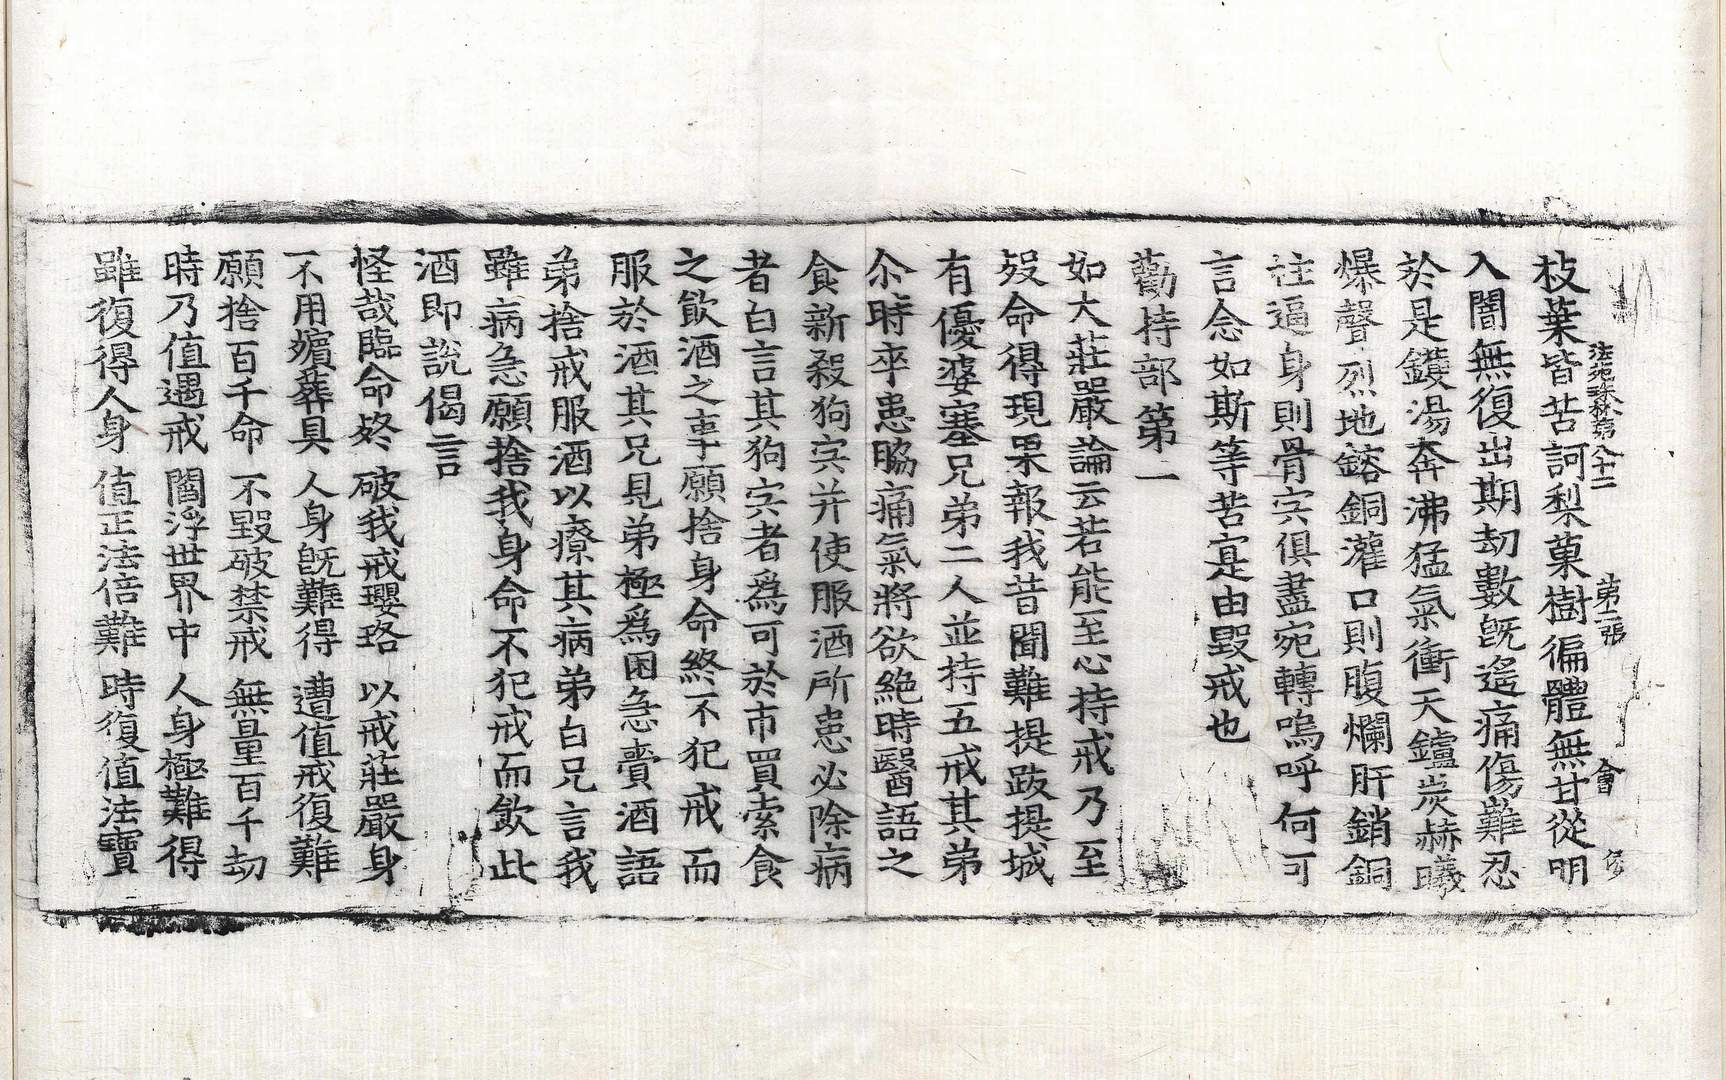 法苑珠林第八十二 第二張 會
枝葉皆苦訶梨菓樹徧體無甘從明
入闇無復出期劫數旣遙痛傷難忍
於是鑊湯奔沸猛氣衝天鑪炭赫曦
爆聲烈地鎔銅灌口則腹爛肝銷銅
柱逼身則骨宍俱盡宛轉嗚呼何可
言念如斯等苦寔由毀戒也
勸持部第一
如大莊嚴論云若能至心持戒乃至
歿命得現果報我昔聞難提跋提城
有優婆塞兄弟二人並持五戒其弟
尒時卒患脇痛氣將欲絶時醫語之
食新殺狗宍并使服酒所患必除病
者白言其狗宍者爲可於市買索食
之飮酒之事願捨身命終不犯戒而
服於酒其兄見弟極爲困急賷酒語
弟捨戒服酒以療其病弟白兄言我
雖病急願捨我身命不犯戒而飮此
酒即說偈言
怪哉臨命終 破我戒瓔珞 以戒莊嚴身
不用殯葬具 人身旣難得 遭值戒復難
願捨百千命 不毀破禁戒 無量百千劫
時乃值遇戒 閻浮世界中 人身極難得
雖復得人身 值正法倍難 時復值法寶